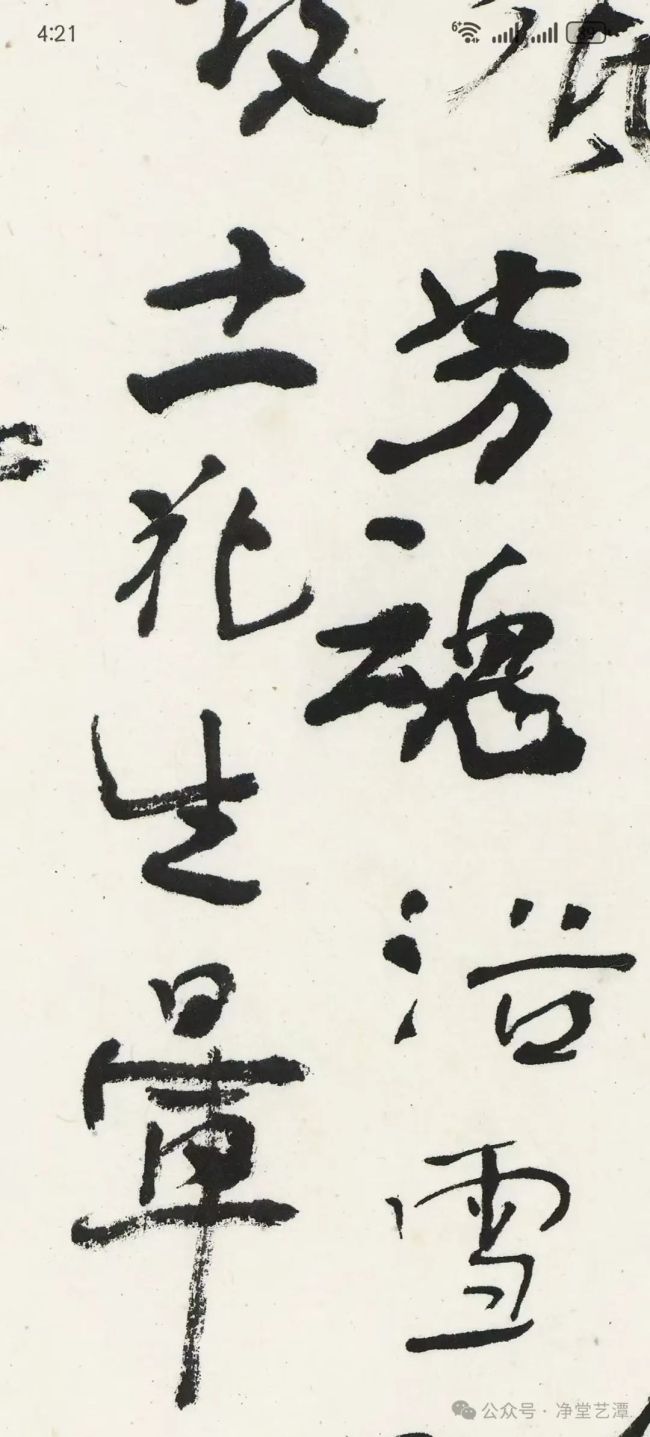 4:21
39
芳魂浴雪
土花生暈
公众号·净堂艺潭